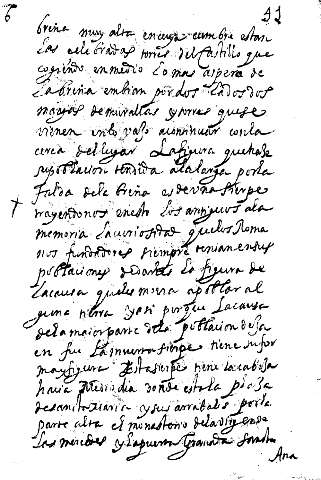 6 41
breña muy alta en cuya cumbre estan
las celebradas torres del Castillo que
cogiendo en medio lo mas aspero de
la breña enbian por dos lados dos
mangas de murallas y torres que se
vienen en lo vaxo a continuar con la
cerca del lugar La figura que haze
su poblacion tendida a la larga por la
falda de la breña es de vna sierpe
trayendonos en esto los antiguos a la
memoria la curiosidad que los Roma
nos fundadores siempre tenian en sus
poblaciones de darles la figura de
la causa que les movia a poblar al
guna tierra y asi porque la causa
de la maior parte de la poblacion desa
en fue la muerta sierpe tiene su for
ma y figura Esta sierpe tiene la cabeza
hacia medio dia donde esta la plaza
de santa Maria y sus arrabales por la
parte alta el monasterio de la virgen de
las mercedes y la puerta Granada
Ana